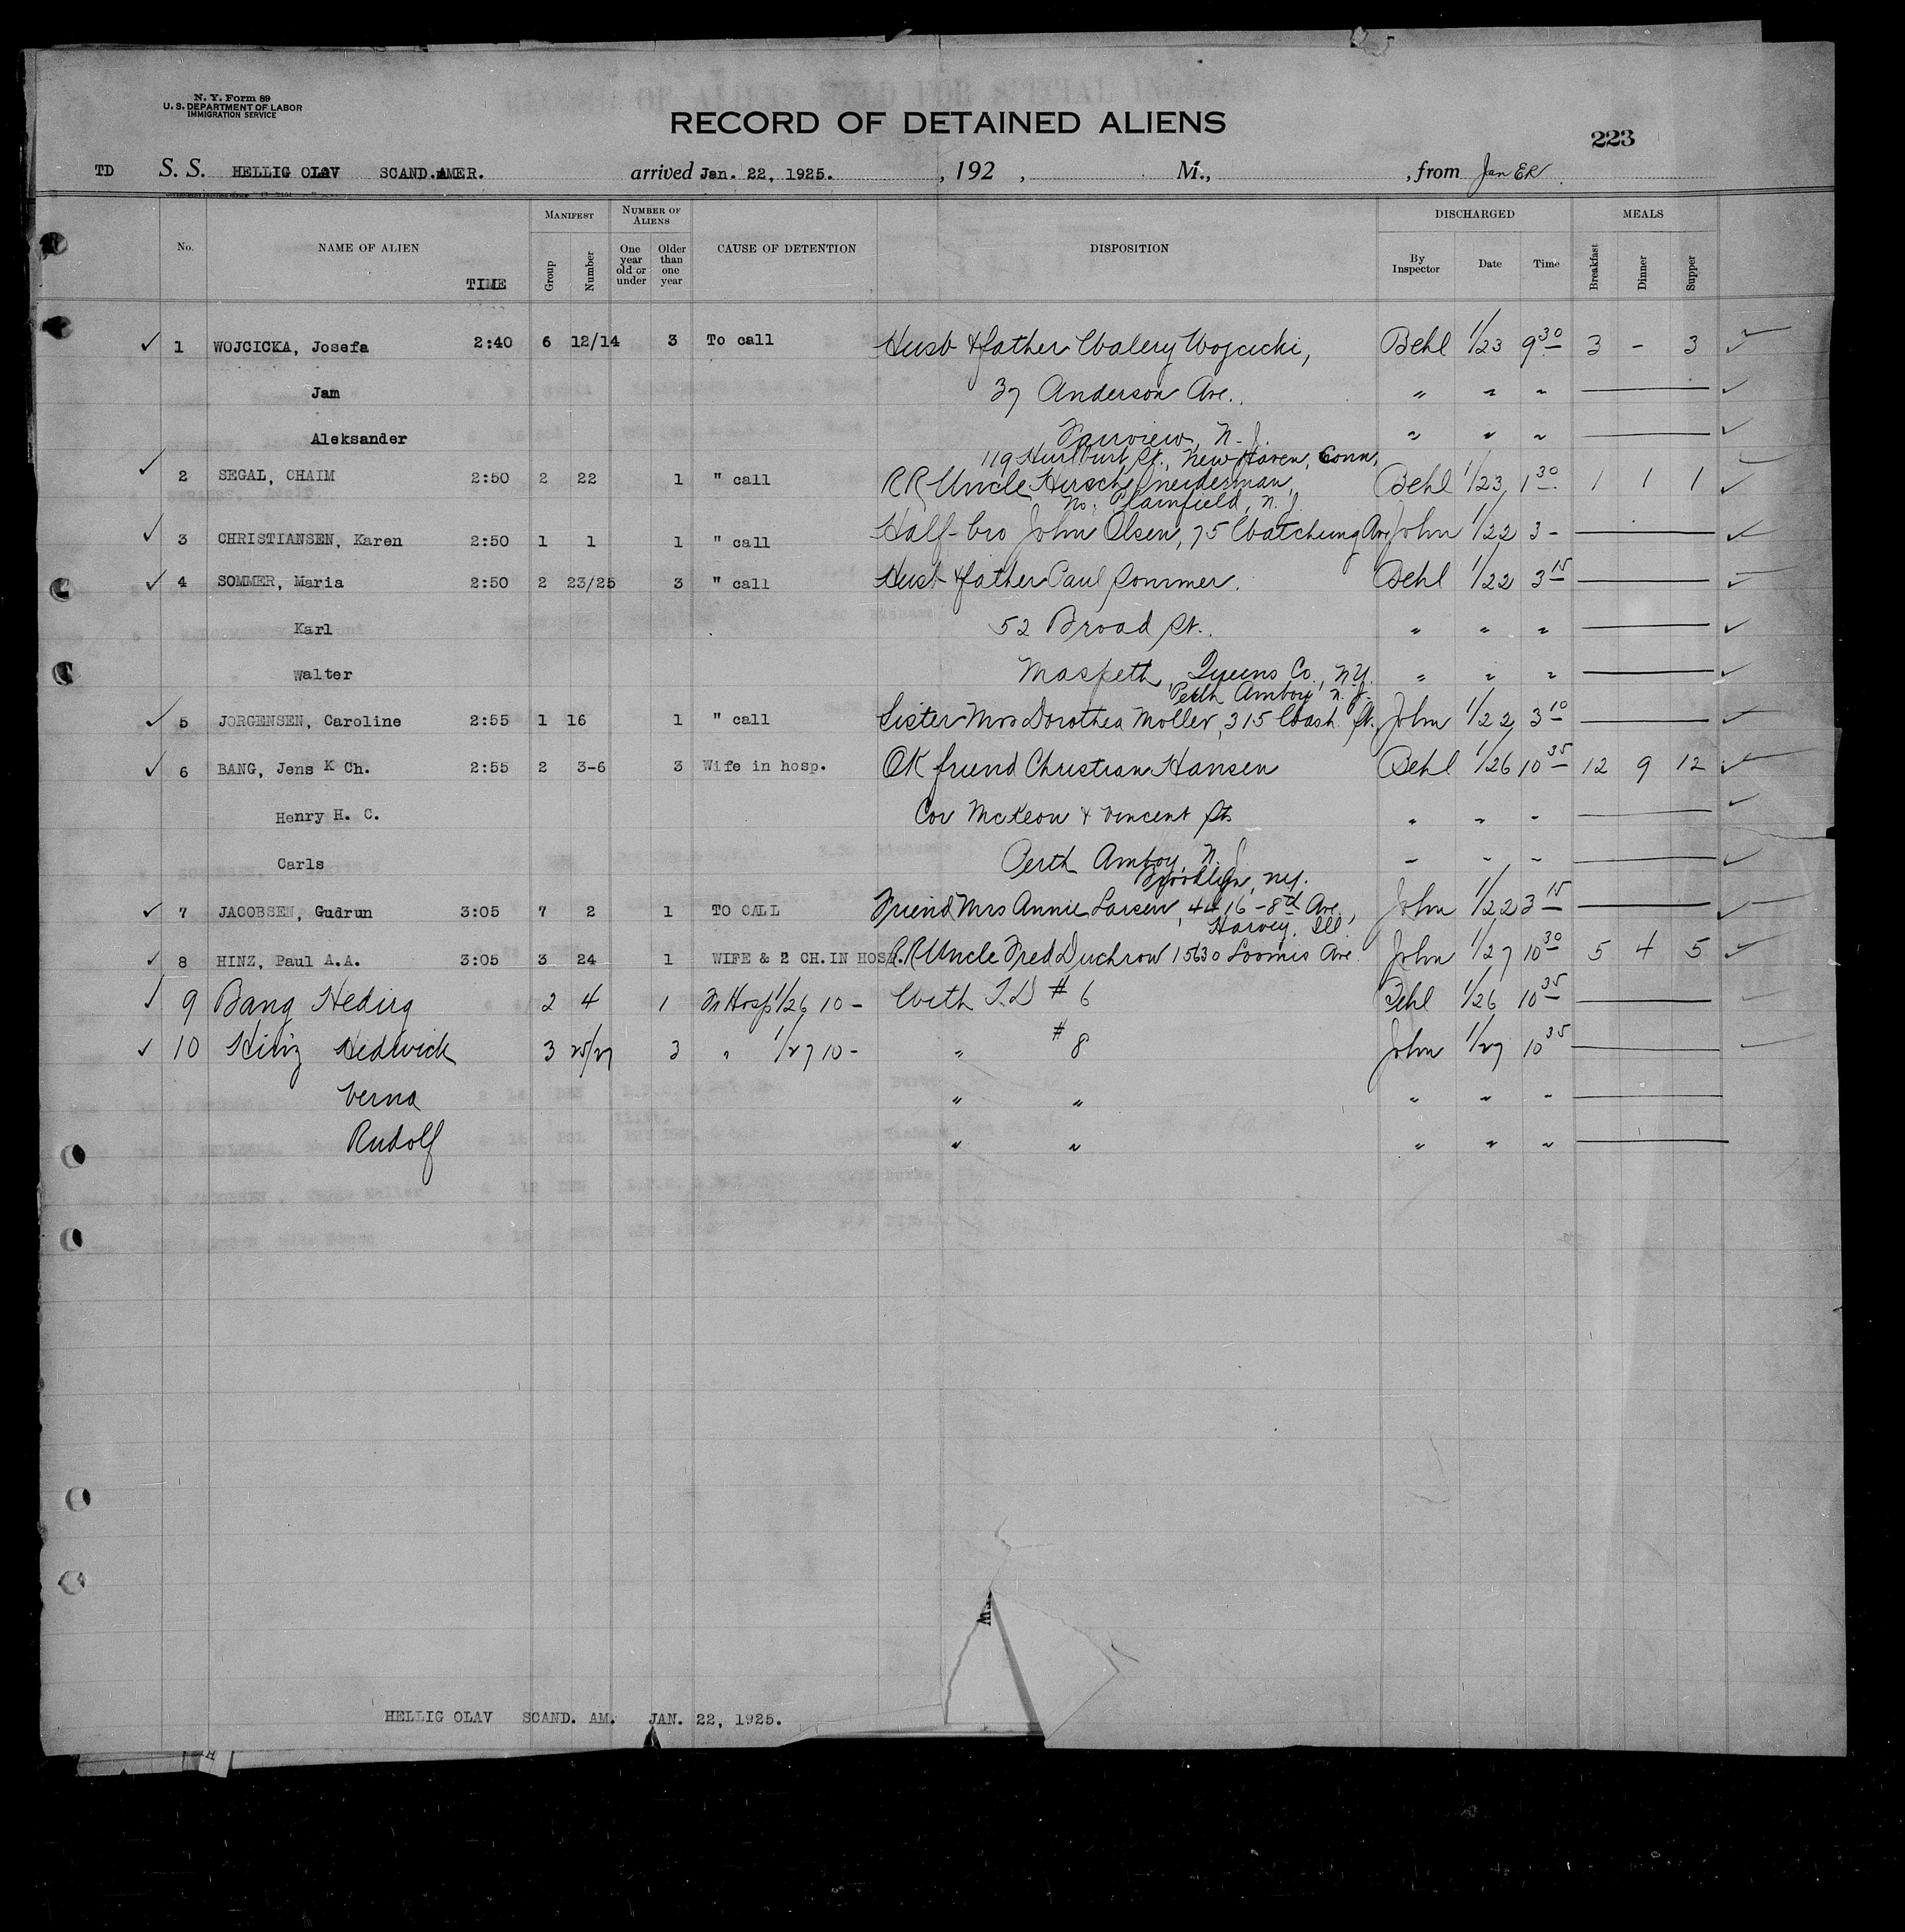 N. Y. Form 89
U. S. DEPARTMENT OF LABOR
IMMIGRATION SERVICE
RECORD OF DETAINED ALIENS
223
TD S. S. HELLIG OLAV SCAND.AMER. arrived Jan. 22, 1925. , 192 , M., , from
No. NAME OF ALIEN TIME MANIFEST Group Number NUMBER OF ALIENS One year old or under Older than one year CAUSE OF DETENTION DISPOSITION DISCHARGED By Inspector Date Time MEALS Breakfast Dinner Supper
✓ 1 WOJCICKA, Josefa 2:40 6 12/14 3 To call Husb & father Walery Wojcicki, Behl 1/23 9 30 3 - 3 ✓
Jam 37 Anderson Ave. " " " ✓
Aleksander Fairview, N. J. " " " ✓
119 Hurlburt St., New Haven, Conn.
✓ 2 SEGAL, CHAIM 2:50 2 22 1 " call RR Uncle Hersche Sneiderman, Behl 1/23 1 30 1 1 1 ✓
No. Plainfield, N. J.
✓ 3 CHRISTIANSEN, Karen 2:50 1 1 1 " call Half-bro John Olsen, 75 Watchung Ave John 1/22 3 - ✓
✓ 4 SOMMER, Maria 2:50 2 23/25 3 " call Husb & father Paul Sommer. Behl 1/22 3 15 ✓
Karl 52 Broad St. " " " ✓
Walter Maspeth, Queens Co., N.Y. " " " ✓
Perth Amboy, N. J.
✓ 5 JORGENSEN, Caroline 2:55 1 16 1 " call Sister Mrs Dorothea Moller, 315 Wash. St. John 1/22 3 10 ✓
✓ 6 BANG, Jens K Ch. 2:55 2 3-6 3 Wife in hosp. OK friend Christian Hansen Behl 1/26 10 35 12 9 12 ✓
Henry H. C. Cor McKeon & Vincent Sts " " " ✓
Carls Perth Amboy, N. J. " " " ✓
Brooklyn, N.Y.
✓ 7 JACOBSEN, Gudrun 3:05 7 2 1 TO CALL Friend Mrs Annie Larsen, 4416 - 8th Ave., John 1/22 3 15 ✓
Harvey, Ill.
✓ 8 HINZ, Paul A.A. 3:05 3 24 1 WIFE & 2 CH. IN HOSP. RR Uncle Fred Duchrow 15630 Loomis Ave. John 1/27 10 30 5 4 5 ✓
✓ 9 Bang Hedirg 2 4 1 In Hosp 1/26 10 - With T.D # 6 Behl 1/26 10 35 ✓
✓ 10 Hinz Hedwick 3 25/27 3 " 1/27 10 - " # 8 John 1/27 10 35 ✓
Verna " " " " "
Rudolf " " " " "
HELLIG OLAV SCAND. AM. JAN. 22, 1925.